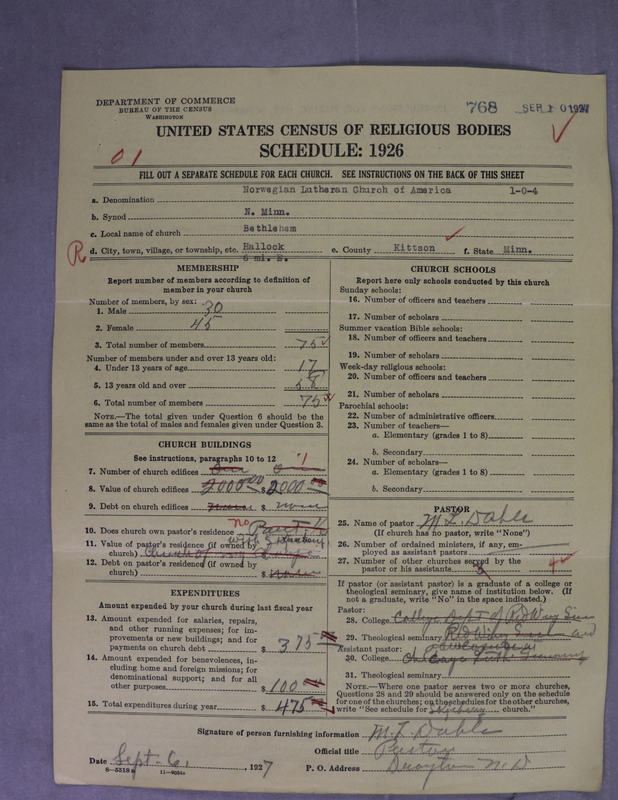 DEPARTMENT OF COMMERCE
BUREAU OF THE CENSUS
WASHINGTON
768 SEP 10 1927
UNITED STATES CENSUS OF RELIGIOUS BODIES
SCHEDULE: 1926
01
FILL OUT A SEPARATE SCHEDULE FOR EACH CHURCH. SEE INSTRUCTIONS ON THE BACK OF THIS SHEET
a. Denomination Norwegian Lutheran Church of America 1-0-4
b. Synod N. Minn.
c. Local name of church Bethlehem
R d. City, town, village, or township, etc. Hallock e. County Kittson f. State Minn.
6 mi. E.
MEMBERSHIP
Report number of members according to definition of
member in your church
Number of members, by sex:
1. Male 30
2. Female 45
3. Total number of members 75
Number of members under and over 13 years old:
4. Under 13 years of age 17
5. 13 years old and over 58
6. Total number of members 75
NOTE.—The total given under Question 6 should be the
same as the total of males and females given under Question 3.
CHURCH BUILDINGS
See instructions, paragraphs 10 to 12
7. Number of church edifices 1
8. Value of church edifices 2000.00 $ 2000
9. Debt on church edifices $ none
10. Does church own pastor's residence no
11. Value of pastor's residence (if owned by
church)
12. Debt on pastor's residence (if owned by
church) $
EXPENDITURES
Amount expended by your church during last fiscal year
13. Amount expended for salaries, repairs,
and other running expenses; for im-
provements or new buildings; and for
payments on church debt $ 375
14. Amount expended for benevolences, in-
cluding home and foreign missions; for
denominational support; and for all
other purposes $ 100
15. Total expenditures during year $ 475
CHURCH SCHOOLS
Report here only schools conducted by this church
Sunday schools:
16. Number of officers and teachers
17. Number of scholars
Summer vacation Bible schools:
18. Number of officers and teachers
19. Number of scholars
Week-day religious schools:
20. Number of officers and teachers
21. Number of scholars
Parochial schools:
22. Number of administrative officers
23. Number of teachers—
a. Elementary (grades 1 to 8)
b. Secondary
24. Number of scholars—
a. Elementary (grades 1 to 8)
b. Secondary
PASTOR
25. Name of pastor M. L. Dahle
(If church has no pastor, write "None")
26. Number of ordained ministers, if any, em-
ployed as assistant pastors
27. Number of other churches served by the
pastor or his assistants 4
If pastor (or assistant pastor) is a graduate of a college or
theological seminary, give name of institution below. (If
not a graduate, write "No" in the space indicated.)
Pastor:
28. College College Dept of Red Wing Sem
29. Theological seminary Red Wing and
Assistant pastor:
30. College Chicago Luth Seminary
31. Theological seminary
NOTE.—Where one pastor serves two or more churches,
Questions 28 and 29 should be answered only on the schedule
for one of the churches; on the schedules for the other churches,
write "See schedule for church."
Signature of person furnishing information M. L. Dahle
Official title Pastor
Date Sept. 6, 1927 P. O. Address Drayton N. D
8-5318a 11-9054a